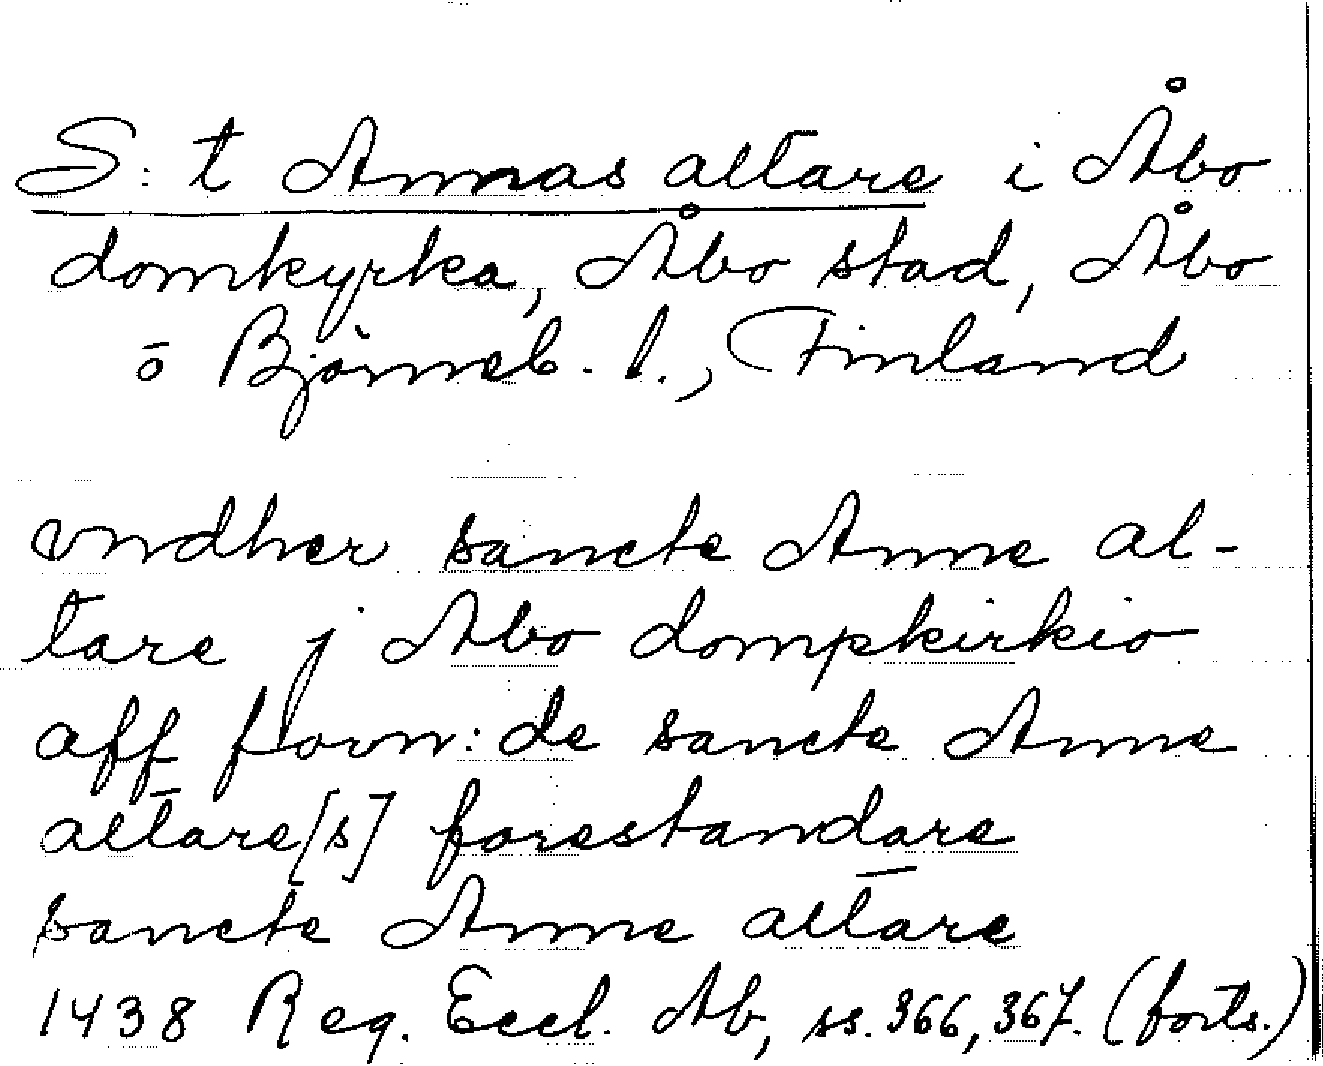 S:t Annas altare i Åbo
domkyrka, Åbo stad, Åbo
o Björneb. l., Finland
vndher sancte Anne al-
tare j Abo dompkirkio
aff forn:de sancte Anne
altare[s] forestandare
sancte Anne altare
1438 Reg. Eccl. Ab, ss. 366, 367. (forts.)